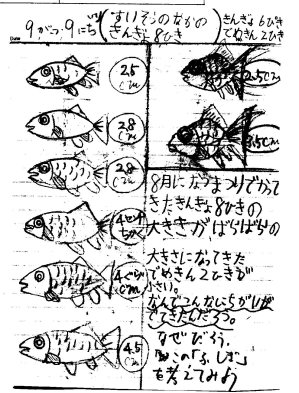 9がつ9にち
すいそうのなかの
きんぎょ8ひき
きんぎょ6ぴき
でめきん2ひき
2.5cm
2.8cm
2.8cm
4センチ
4ぐらいcm
4.5cm
2.5cm
3.5cm
8月になつまつりでかって
きたきんぎょ8ひきの
大きさが、ばらばらの
大きさになってきた
でめきん2ひきが
小さい。
なんでこんなにちがいが
でてきたんだろう。
なぜだろう。
この「ふしぎ」
を考えてみよう